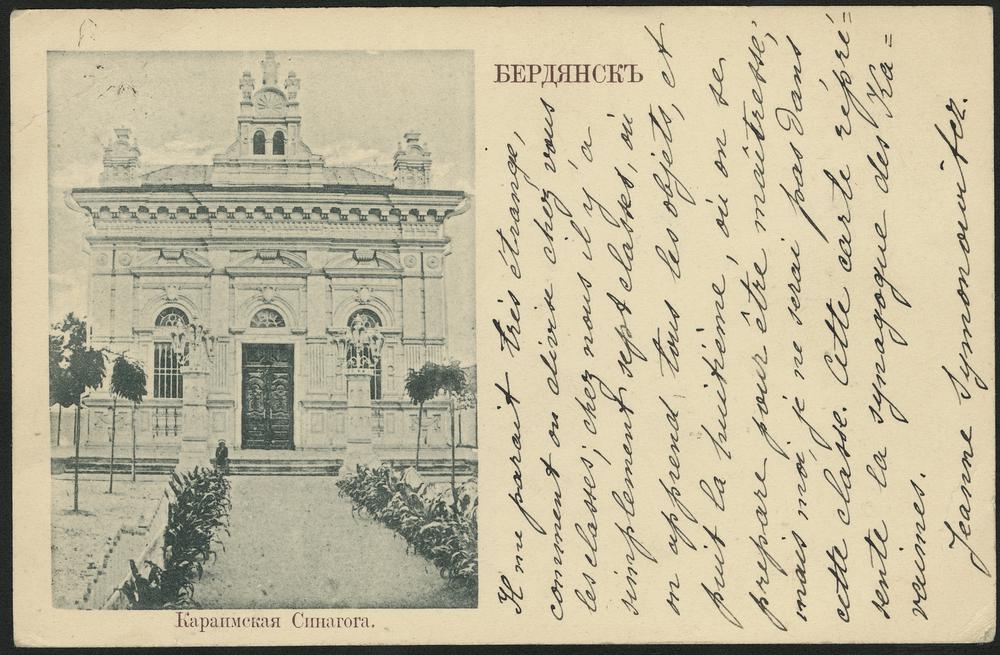 БЕРДЯНСКЪ
Караимская Синагога.
Il me parait très étrange,
comment on divise chez vous
les classes; chez nous il y'a
simplement sept classes, où
on apprend tous les objets, et
puit la huitième, où on se
prepare pour être maîtresse;
mais moi je ne serai pas dans
cette classe. Cette carte répré=
sente la synagogue des Ka=
raimes.
Jeanne Symonovitez.